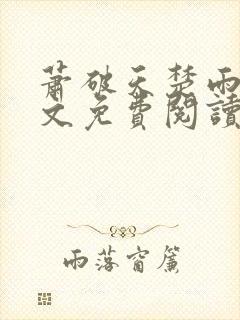 蕭破天楚雨
文免費閱讀
雨落窗簾